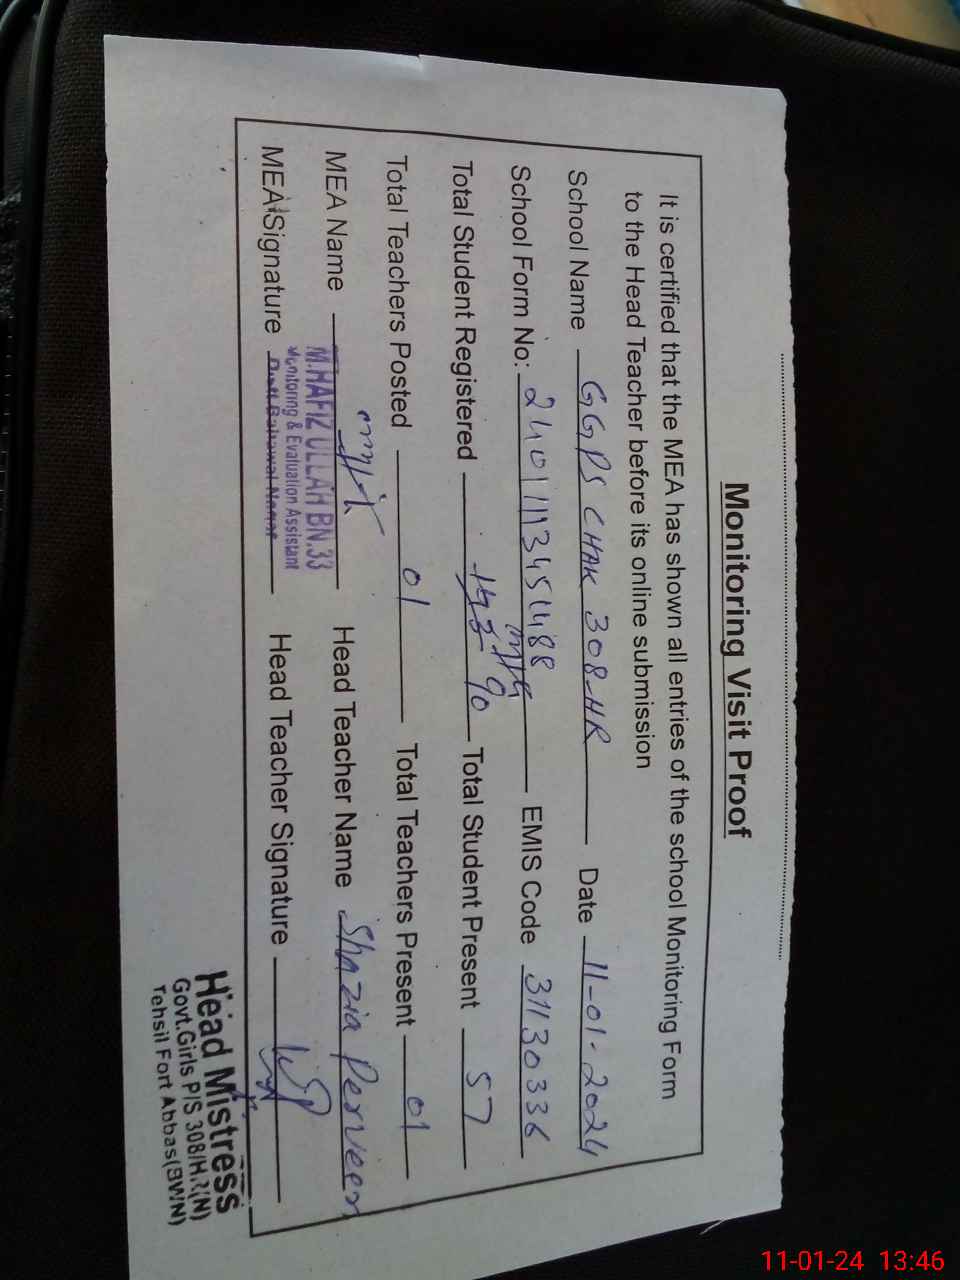 Monitoring Visit Proof
It is certified that the MEA has shown all entries of the school Monitoring Form
to the Head Teacher before its online submission
School Name GGPS CHAK 308-HR Date 11-01-2024
School Form No: EMIS Code 31130336
Total Student Registered 90 Total Student Present 57
Total Teachers Posted 01 Total Teachers Present 01
MEA Name M.HAFIZ ULLAH BN.33 Head Teacher Name Shazia Perveen
Monitoring & Evaluation Assistant
MEA Signature Head Teacher Signature
Head Mistress
Govt.Girls P/S 308/H.R(N)
Tehsil Fort Abbas(BWN)
11-01-24 13:46